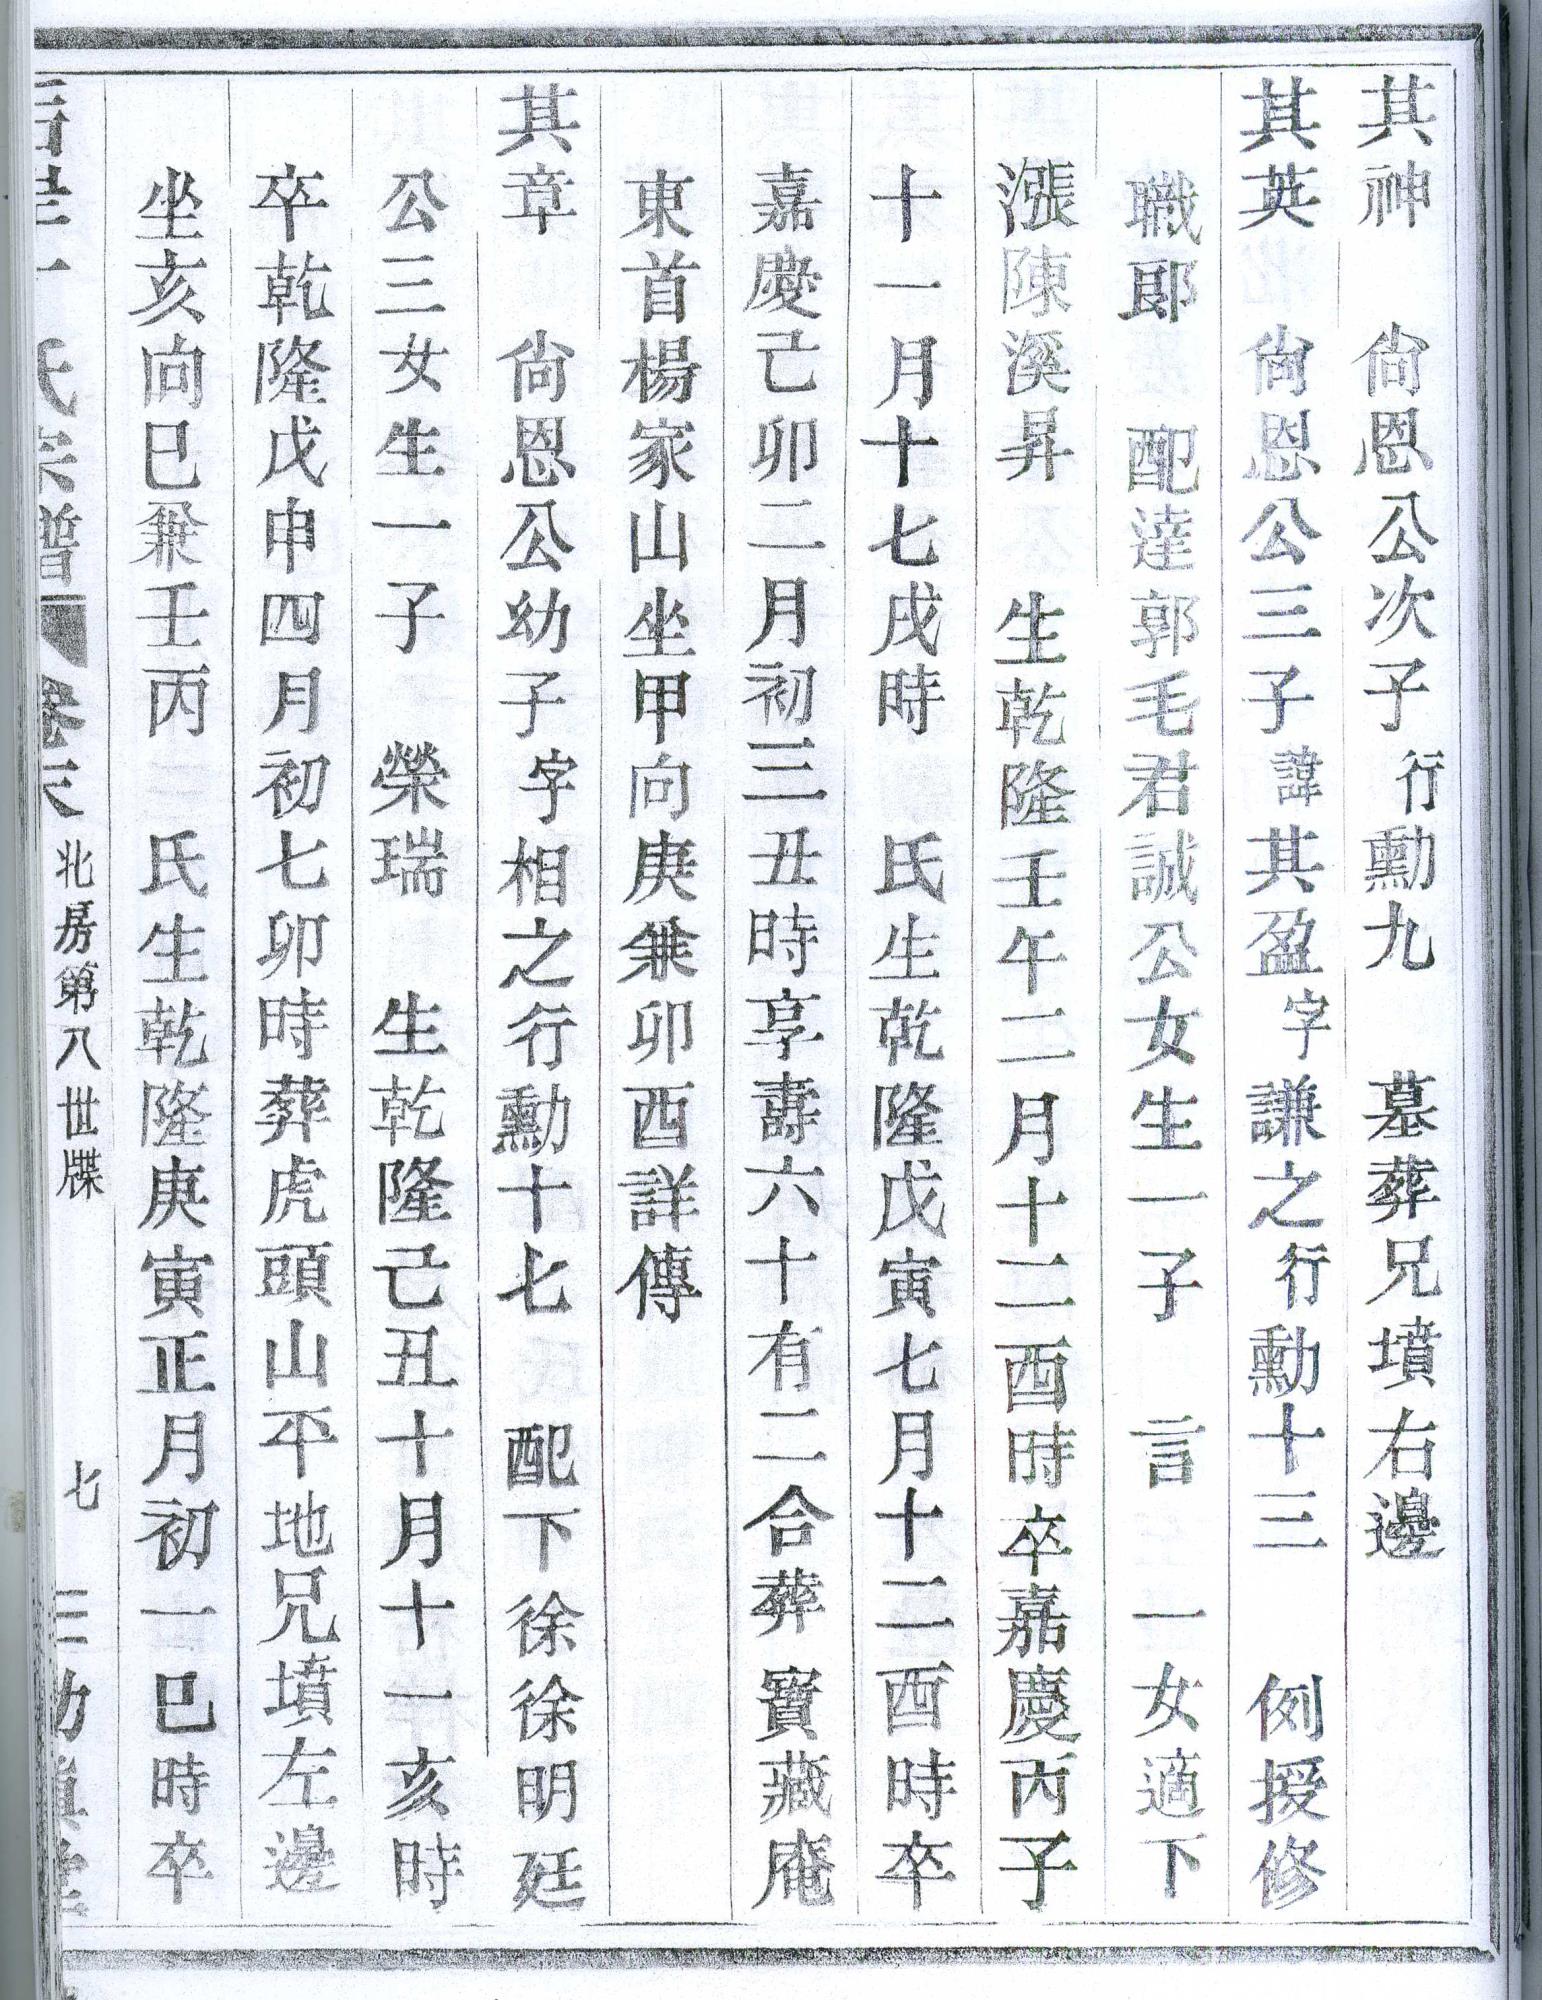 其神　尙恩公次子行勳九　墓葬兄墳右邊
其英　尙恩公三子諱其盈字謙之行勳十三　例授修
職郎　配達郭毛君誠公女生一子　言　一女適下
漲陳溪昇　生乾隆壬午二月十二酉時卒嘉慶丙子
十一月十七戌時　氏生乾隆戊寅七月十二酉時卒
嘉慶己卯二月初三丑時享壽六十有二合葬寶藏庵
東首楊家山坐甲向庚兼卯酉詳傳
其章　尙恩公幼子字相之行勳十七　配下徐徐明廷
公三女生一子　榮瑞　生乾隆己丑十月十一亥時
卒乾隆戊申四月初七卯時葬虎頭山平地兄墳左邊
坐亥向巳兼壬丙　氏生乾隆庚寅正月初一巳時卒
氏宗譜　卷六　北房第八世牒　七